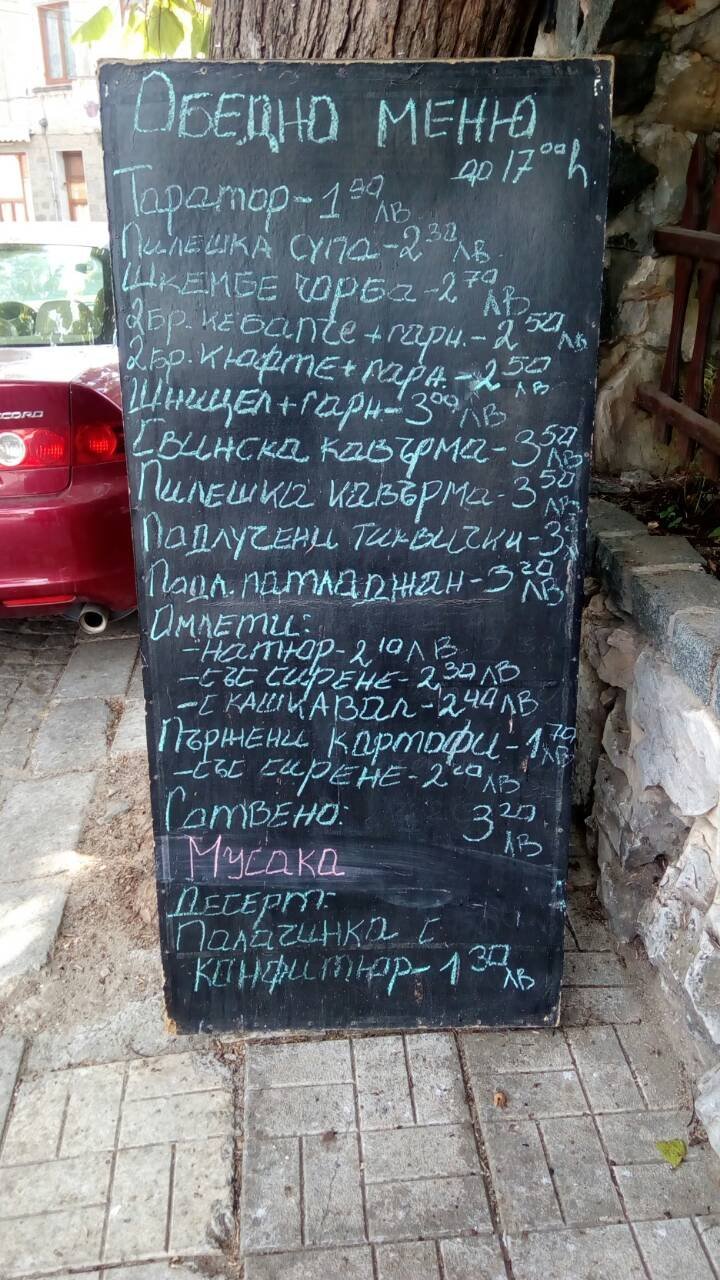 ОБЕДНО МЕНЮ
до 17 00 h.
Таратор - 1 30 лв
Пилешка супа - 2 30 лв
Шкембе чорба - 2 70 лв
2бр. кебапче + гарн. - 2 50 лв
2бр. кюфте + гарн. - 2 50 лв
Шницел + гарн - 3 00 лв
Свинска кавърма - 3 50 лв
Пилешка кавърма - 3 50 лв
Падлучени тиквички - 3
Подл. патладжан - 3 20 лв
Омлети:
- натюр - 2 10 лв
- със сирене - 2 30 лв
- с кашкавал - 2 40 лв
Пържени картофи - 1 70 лв
- със сирене - 2 20 лв
Готвено: 3 20 лв
Мусака
Десерт:
Палачинка с
конфитюр - 1 30 лв
CCORD